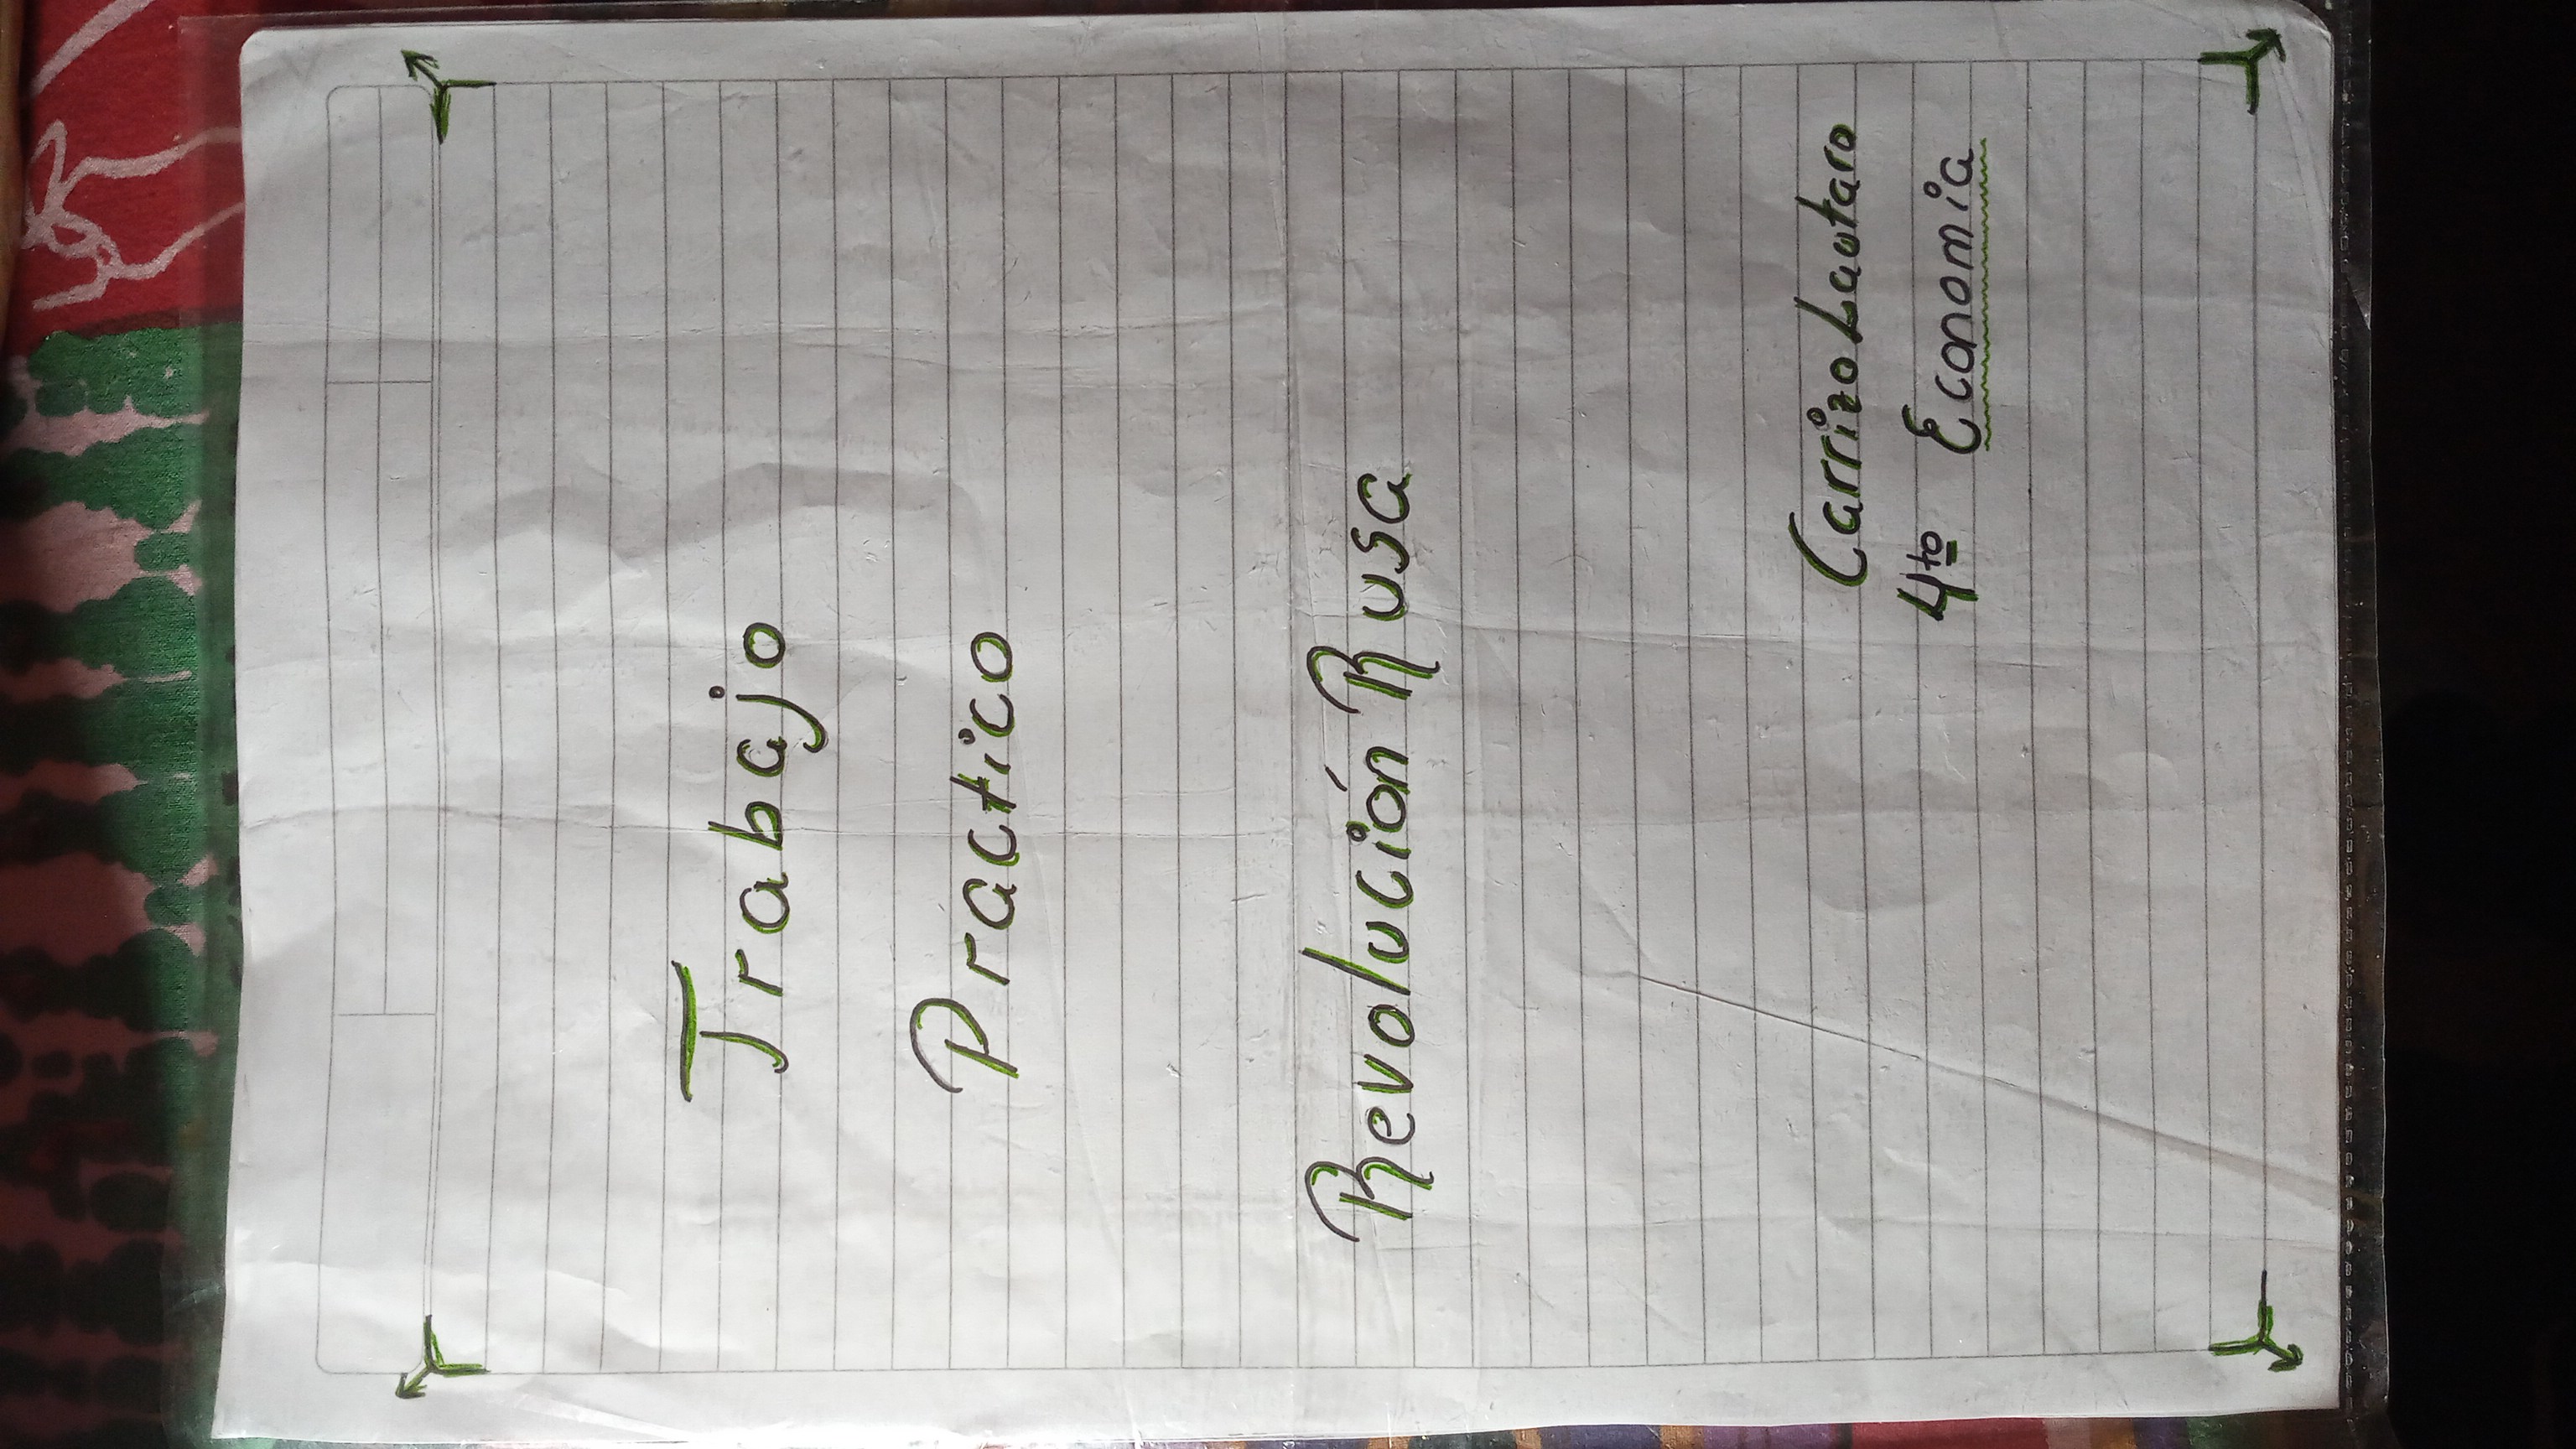 Trabajo
Practico
Revolución Rusa
Carrizo Lautaro
4to Economia